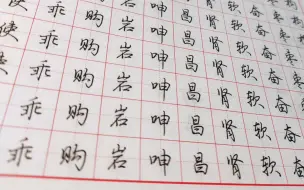 乖 购 岩 呻 昌 肾 软 奋 枣
使 乖 购 岩 呻 昌 肾 软 奋 枣
乖 购 岩 呻 昌 肾 软 奋 枣
乖 购 岩 呻 昌 肾 软 奋
乖 购 岩 呻 昌 肾 软 奋